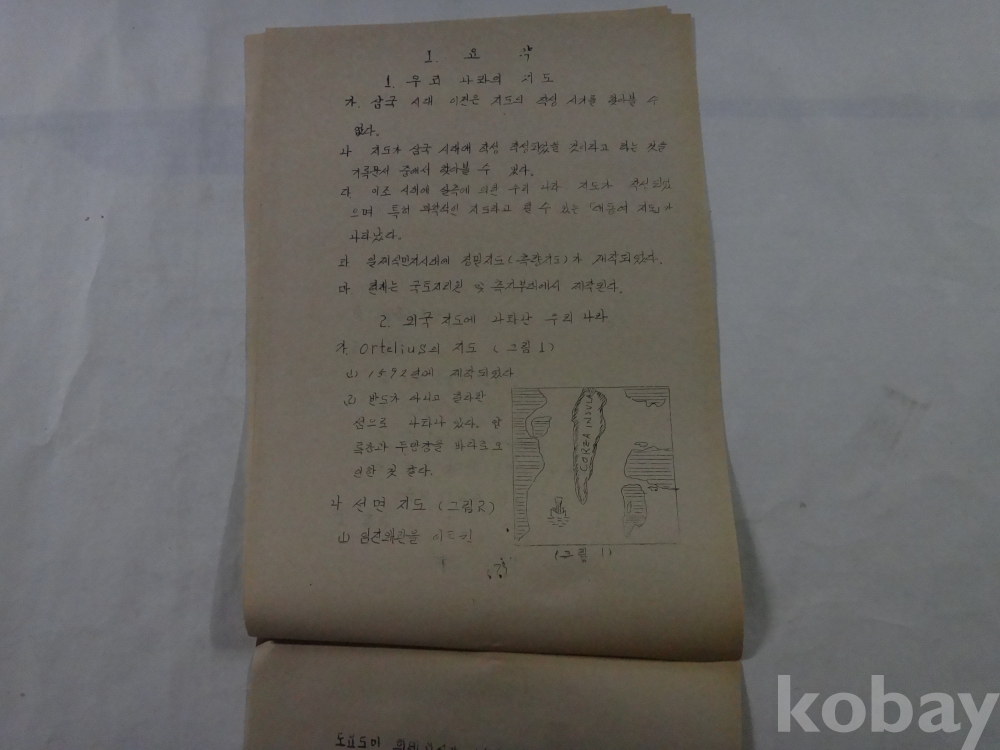 1. 요 약
1. 우리 나라의 지도
가. 삼국 시대 이전은 지도의 작성 시기를 찾아볼 수
없다.
나. 지도가 삼국 시대에 작성 작성되었을 것이라고 하는 것을
기록문서 중에서 찾아볼 수 있다.
다. 이조 시대에 실측에 의한 우리 나라 지도가 작성되었
으며 특히 과학적인 지도라고 할 수 있는 「대동여 지도」가
나타났다.
라. 일제식민지시대에 정밀지도(측량지도)가 제작되었다.
마. 현재는 국토지리원 및 측지부대에서 제작된다.
2. 외국 지도에 나타난 우리 나라
가. Ortelius의 지도 (그림 1)
(1) 1592년에 제작되었다
(2) 반도가 아니고 길다란
섬으로 나타나 있다. 압
록강과 두만강을 바다로 오
인한 것 같다.
나. 선면 지도 (그림 2)
(1)
COREA INSULA
(그림 1)
kobay